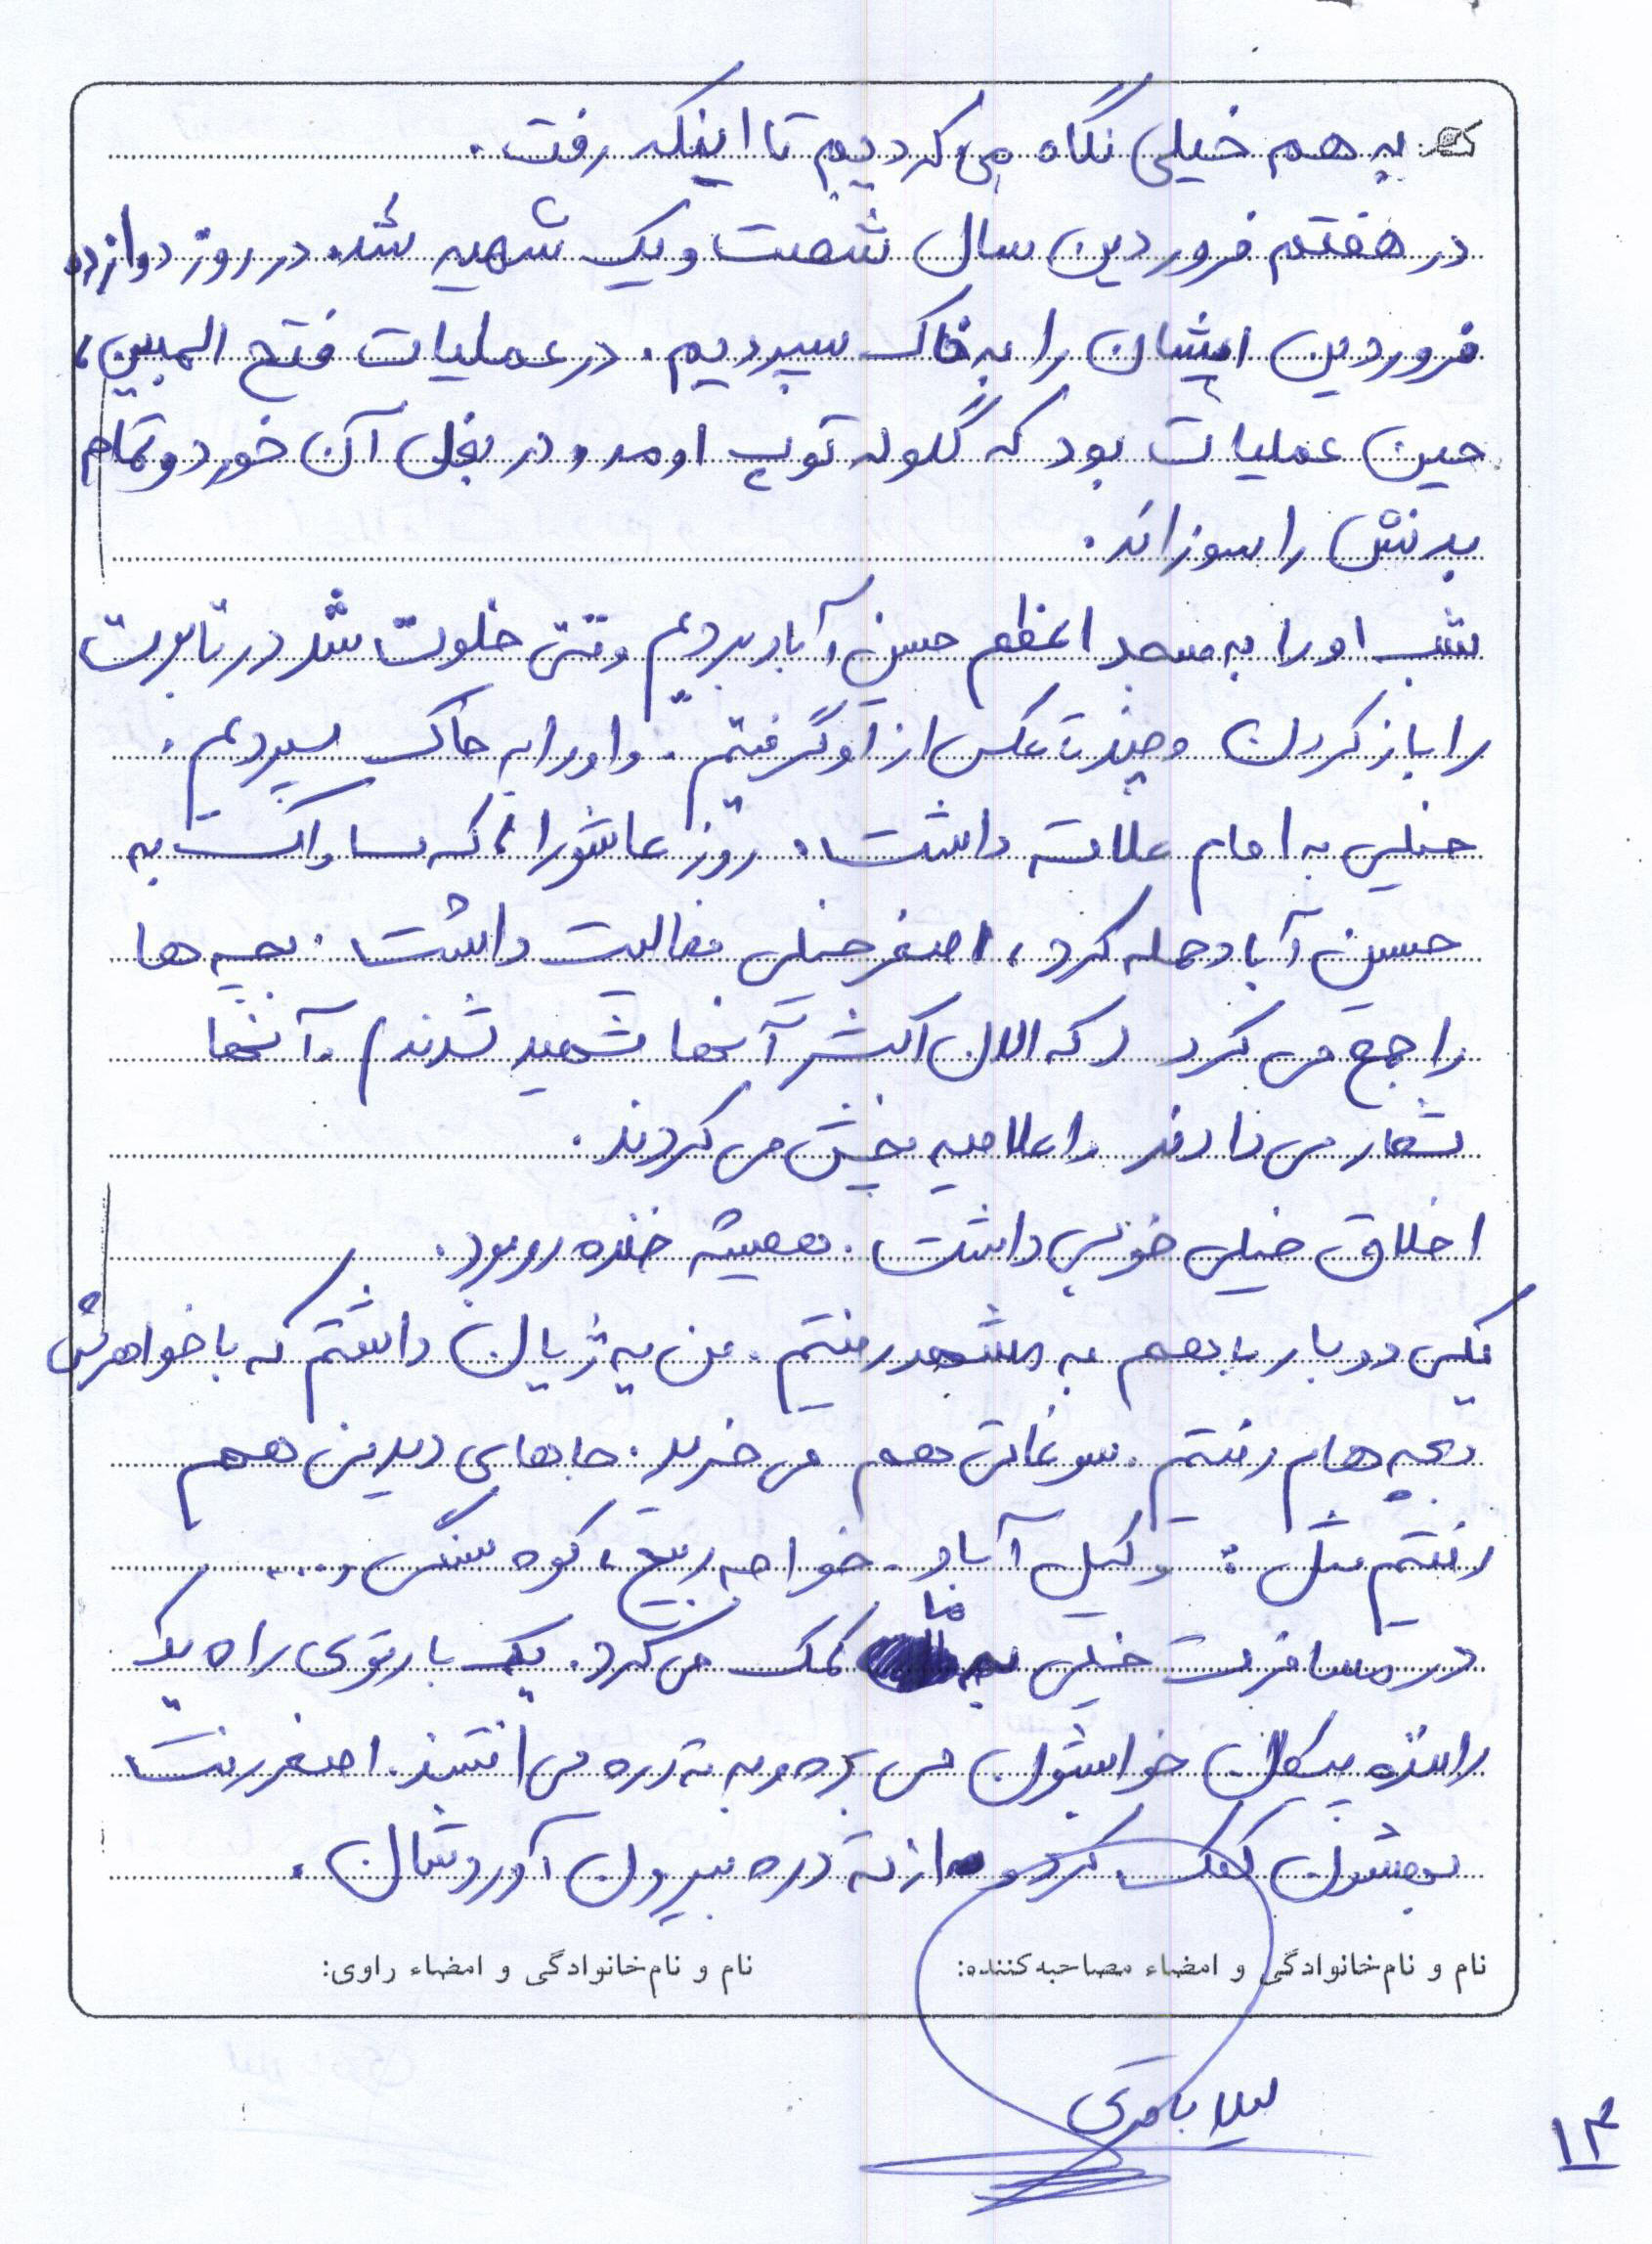 به هم خیلی نگاه می کردیم تا اینکه رفت.
در هفتم فروردین سال شصت و یک شهید شد. در روز دوازده
فروردین ایشان را به خاک سپردیم. در عملیات فتح المبین،
حین عملیات بود که گلوله توپ اومد و در بغل آن خورد و تمام
بدنش را سوزاند.
شب او را به مسجد اعظم حسن آباد بردیم وقتی خلوت شد در تابوت
را باز کردن و چند تا عکس از او گرفتیم. و او را به خاک سپردیم.
خیلی به امام علاقه داشت. روز عاشورا، که ساواک به
حسین آباد حمله کرد، اصغر خیلی فعالیت داشت. بچه ها
را جمع می کرد (که الان اکثر آنها شهید شدند) آنها
شعار می دادند و اعلامیه پخش می کردند.
اخلاق خیلی خوبی داشت. همیشه خنده رو بود.
یکی دو بار با هم به مشهد رفتیم. من یه ژیان داشتم که با خواهرش
بچه هام رفتیم. سوغاتی هم می خرید. جاهای دیدنی هم
رفتیم مثل: وکیل آباد - خواجه ربیع، کوه سنگی و ...
در مسافرت خیلی به ما کمک می کرد. یک بار توی راه یک
راننده پیکان خوابشون می بره و به ته دره می افتند. اصغر رفت
بهشون کمک کرد و از ته دره بیرون آوردشان.
نام و نام خانوادگی و امضاء مصاحبه کننده: نام و نام خانوادگی و امضاء راوی:
لیلا باقری
۱۴